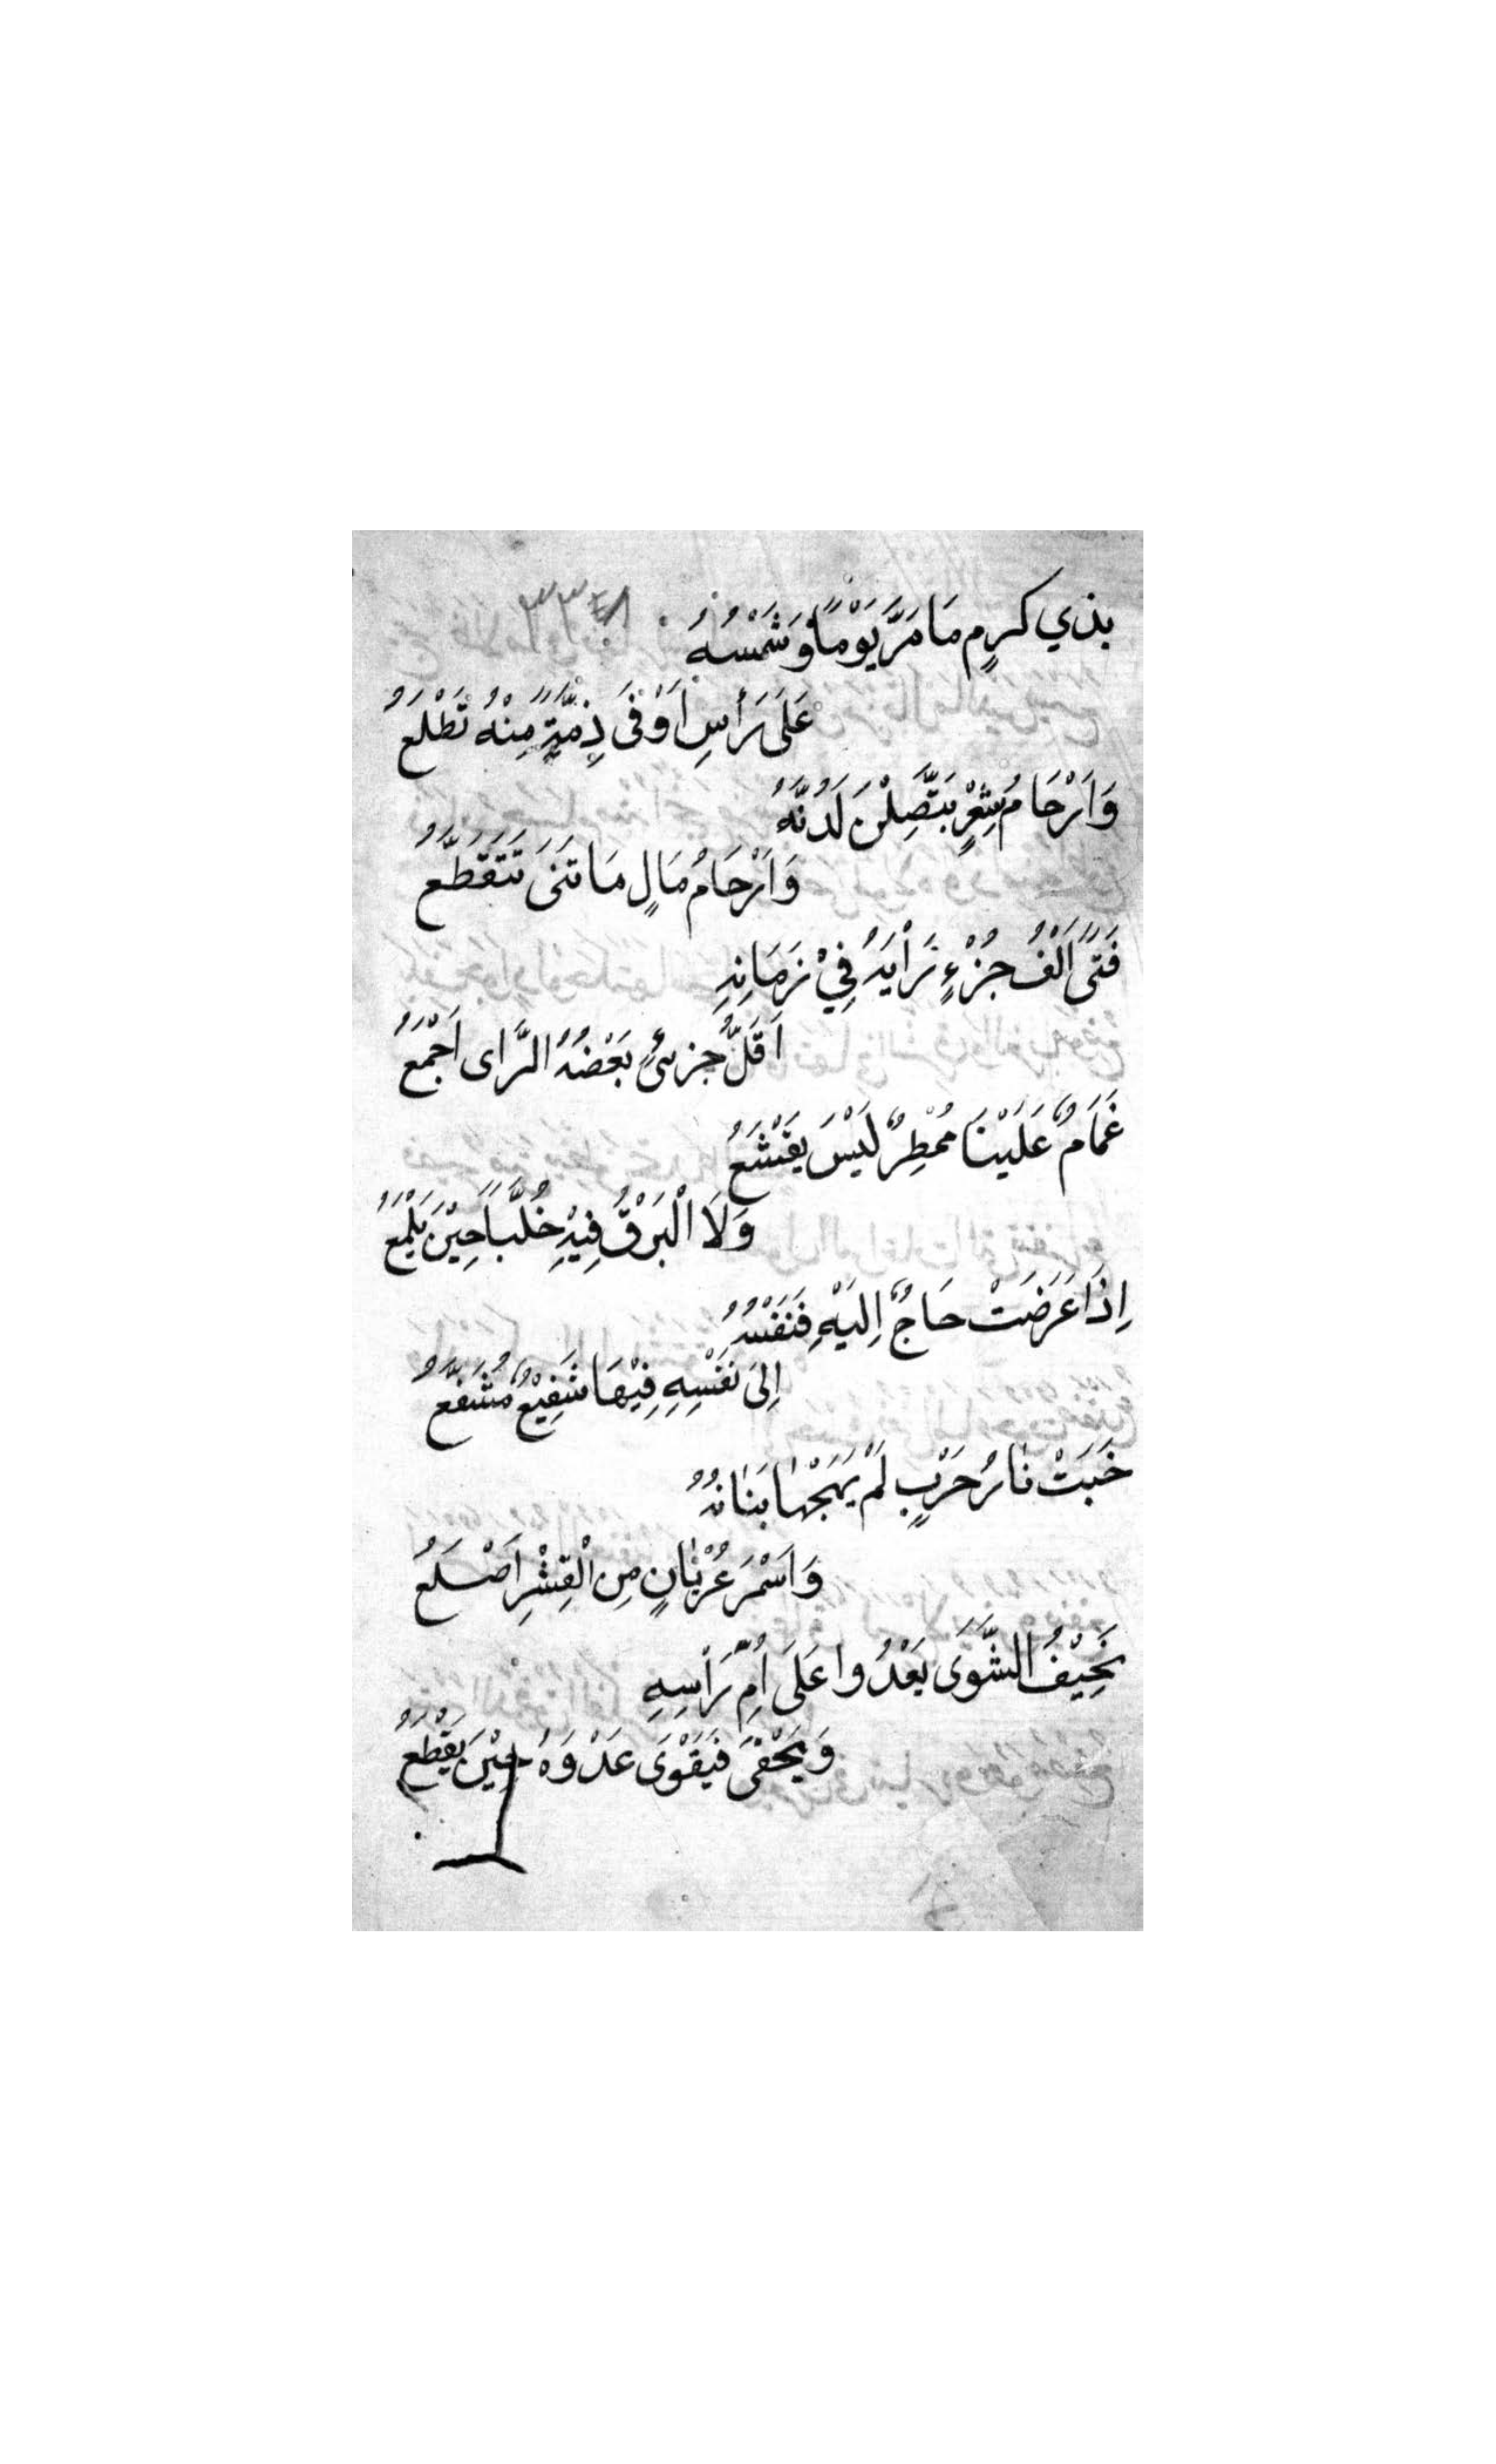 بذي كرمٍ مَا مَرَّ يَوْمًا وَشَمْسُهُ
عَلَى رَأسِ اَوْفَى ذِمَّةٍ مِنْهُ تَطْلَعُ
وَاَرْحَامُ شِعْرٍ يَتَّصِلْنَ لَدُنَّهُ
وَاَرْحَامُ مَالٍ مَا تَنَى تَتَقَطَّعُ
فَتًى اَلْفُ جُزْءٍ رَأْيَهُ فِيْ زَمَانِهِ
اَقَلُّ جزئىءٍ بَعْضُهُ الرَّاى اَجْمَعُ
غَمَامٌ عَلَيْنَا مُمْطِرٌ لَيْسَ يَقْشَعُ
وَلَا الْبَرْقُ فِيْهِ خُلَّباً حِيْنَ يَلْمَعُ
اِذَا عَرَضَتْ حَاجٌ اِلَيْهِ فَنَفْسُهُ
اِلَى نَفْسِهِ فِيْهَا شَفِيْعٌ مُشَفَّعُ
خَبَتْ نَارُ حَرْبٍ لَمْ يَهَجْهَا بَنَانُهُ
وَاَسْمَرَ عُرْيَانٍ مِن الْقِشْرِ اَصْلَعُ
نَحِيْفُ الشَّوَى يَعْدُوا عَلَى اُمِّ رَأسِهِ
وَيَحْفَى فَيَقْوَى عَدْوَهُ حِيْنَ يَقْطَعُ